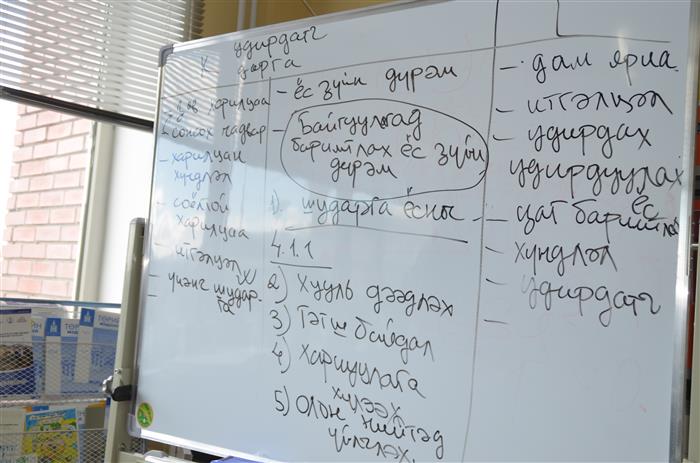 удирдагч
дарга
харилцаа
сонсох чадвар
харилцан
хүндлэл
соёлтой
харилцаа
итгэлцэл
үнэнч шудар-
га
- ёс зүйн дүрэм
Байгууллагад
баримтлах ёс зүйн
дүрэм
1) шударга ёсны
4.1.1
2) Хууль дээдлэх
3) Гэгш байдал
4) Хариуцлага
хүлээх
5) Олон нийтэд
үйлчлэх.
- дам яриа
- итгэлцэл
- удирдах
удирдуулах
ёс
- цаг баримтлах
- хүндлэл
- удирдагч